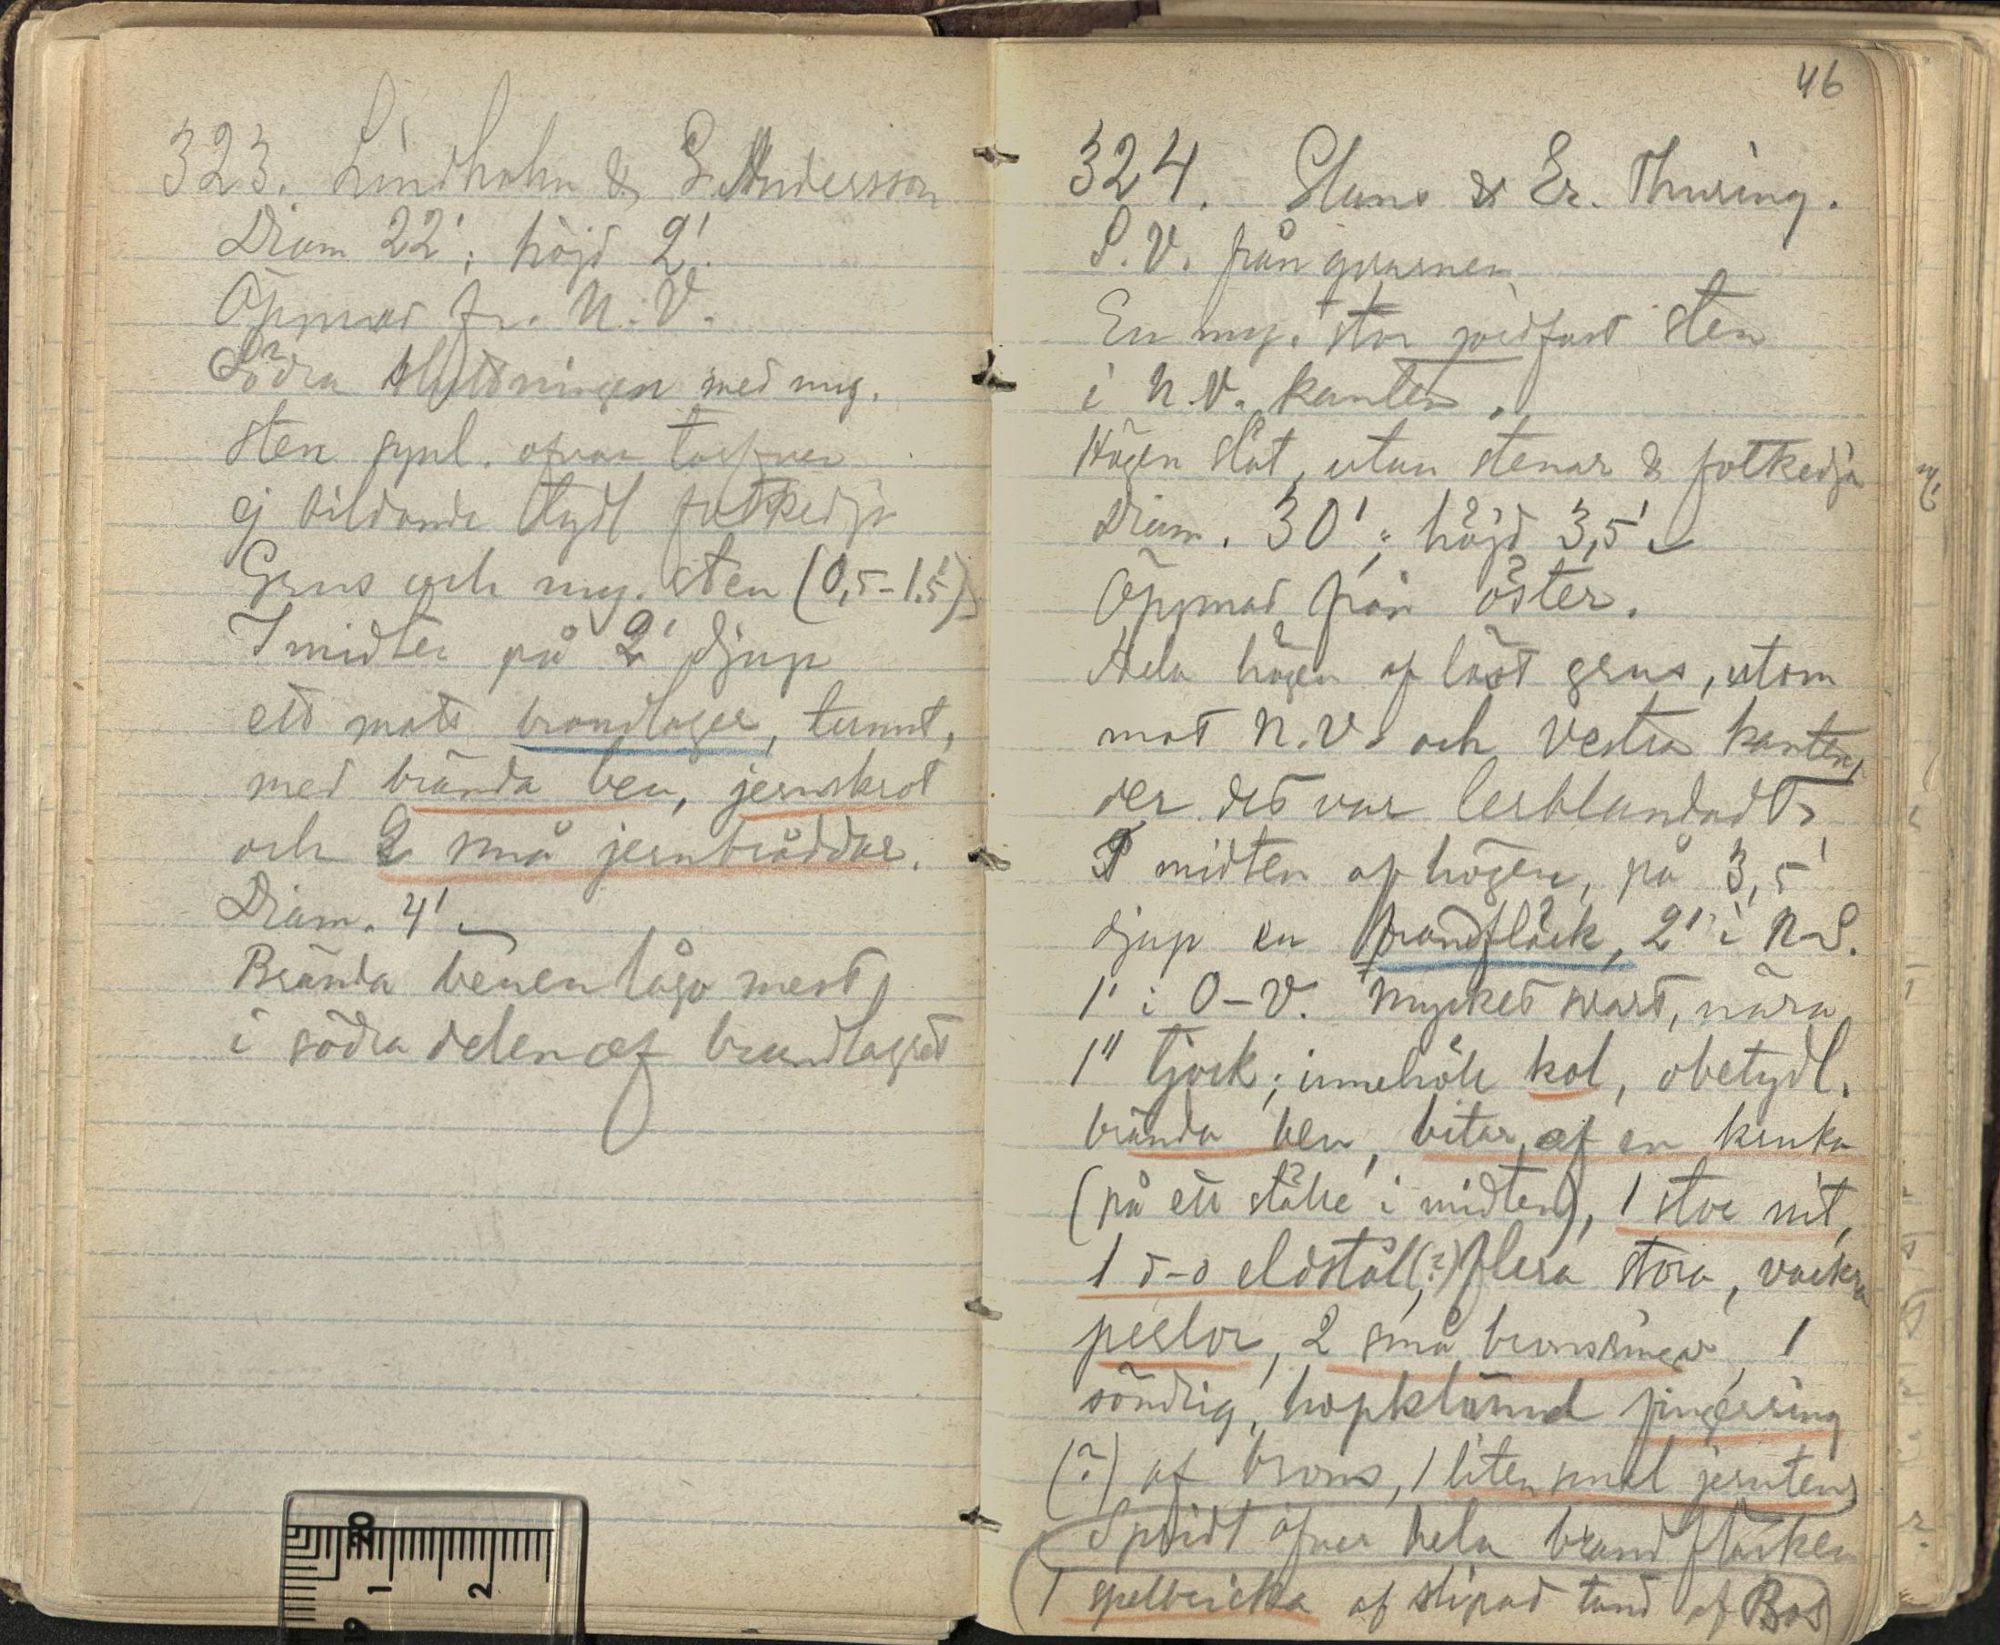 323. Lindholm & G. Andersson
Diam 22'; höjd 2'.
Öpnad fr. N.V.
Södra sluttningen med myc.
sten synl. ofvan torfven
ej bildande tydl fotkedja
Grus och myc. sten (0,5-1,5')
I midten på 2' djup
ett matt brandlager, tunnt,
med brända ben, jernskrot
och 2 små jernbråddar.
Diam. 4'
Brända benen lågo mest
i södra delen af brandlagret
46
324. & Er. Thuring.
S.V. från qvarnen
En myc. stor jordfast sten
i N.V. kanten.
Högen slät, utan stenar & fotkedja
Diam. 30'; höjd 3,5'
Öppnad från öster.
Hela högen af löst grus, utom
mot N.V. och Vestra kanten,
der det var lerblandadt.
I midten af högen, på 3,5'
djup en brandfläck, 2' i N-S.
1' i O-V. Mycket svart, nära
1" tjock; innehöll kol, obetydl.
brända ben, bitar af en kruka
(på ett ställe i midten), 1 stor nit,
1 d-o eldstål(?), flera stora, vackra
perlor, 2 små bronsringar, 1
söndrig, hopklämd fingerring
(?) af brons, 1 liten smal jernten
Spridt öfver hela brandfläcken
1 spelbricka af slipad tand af Bos